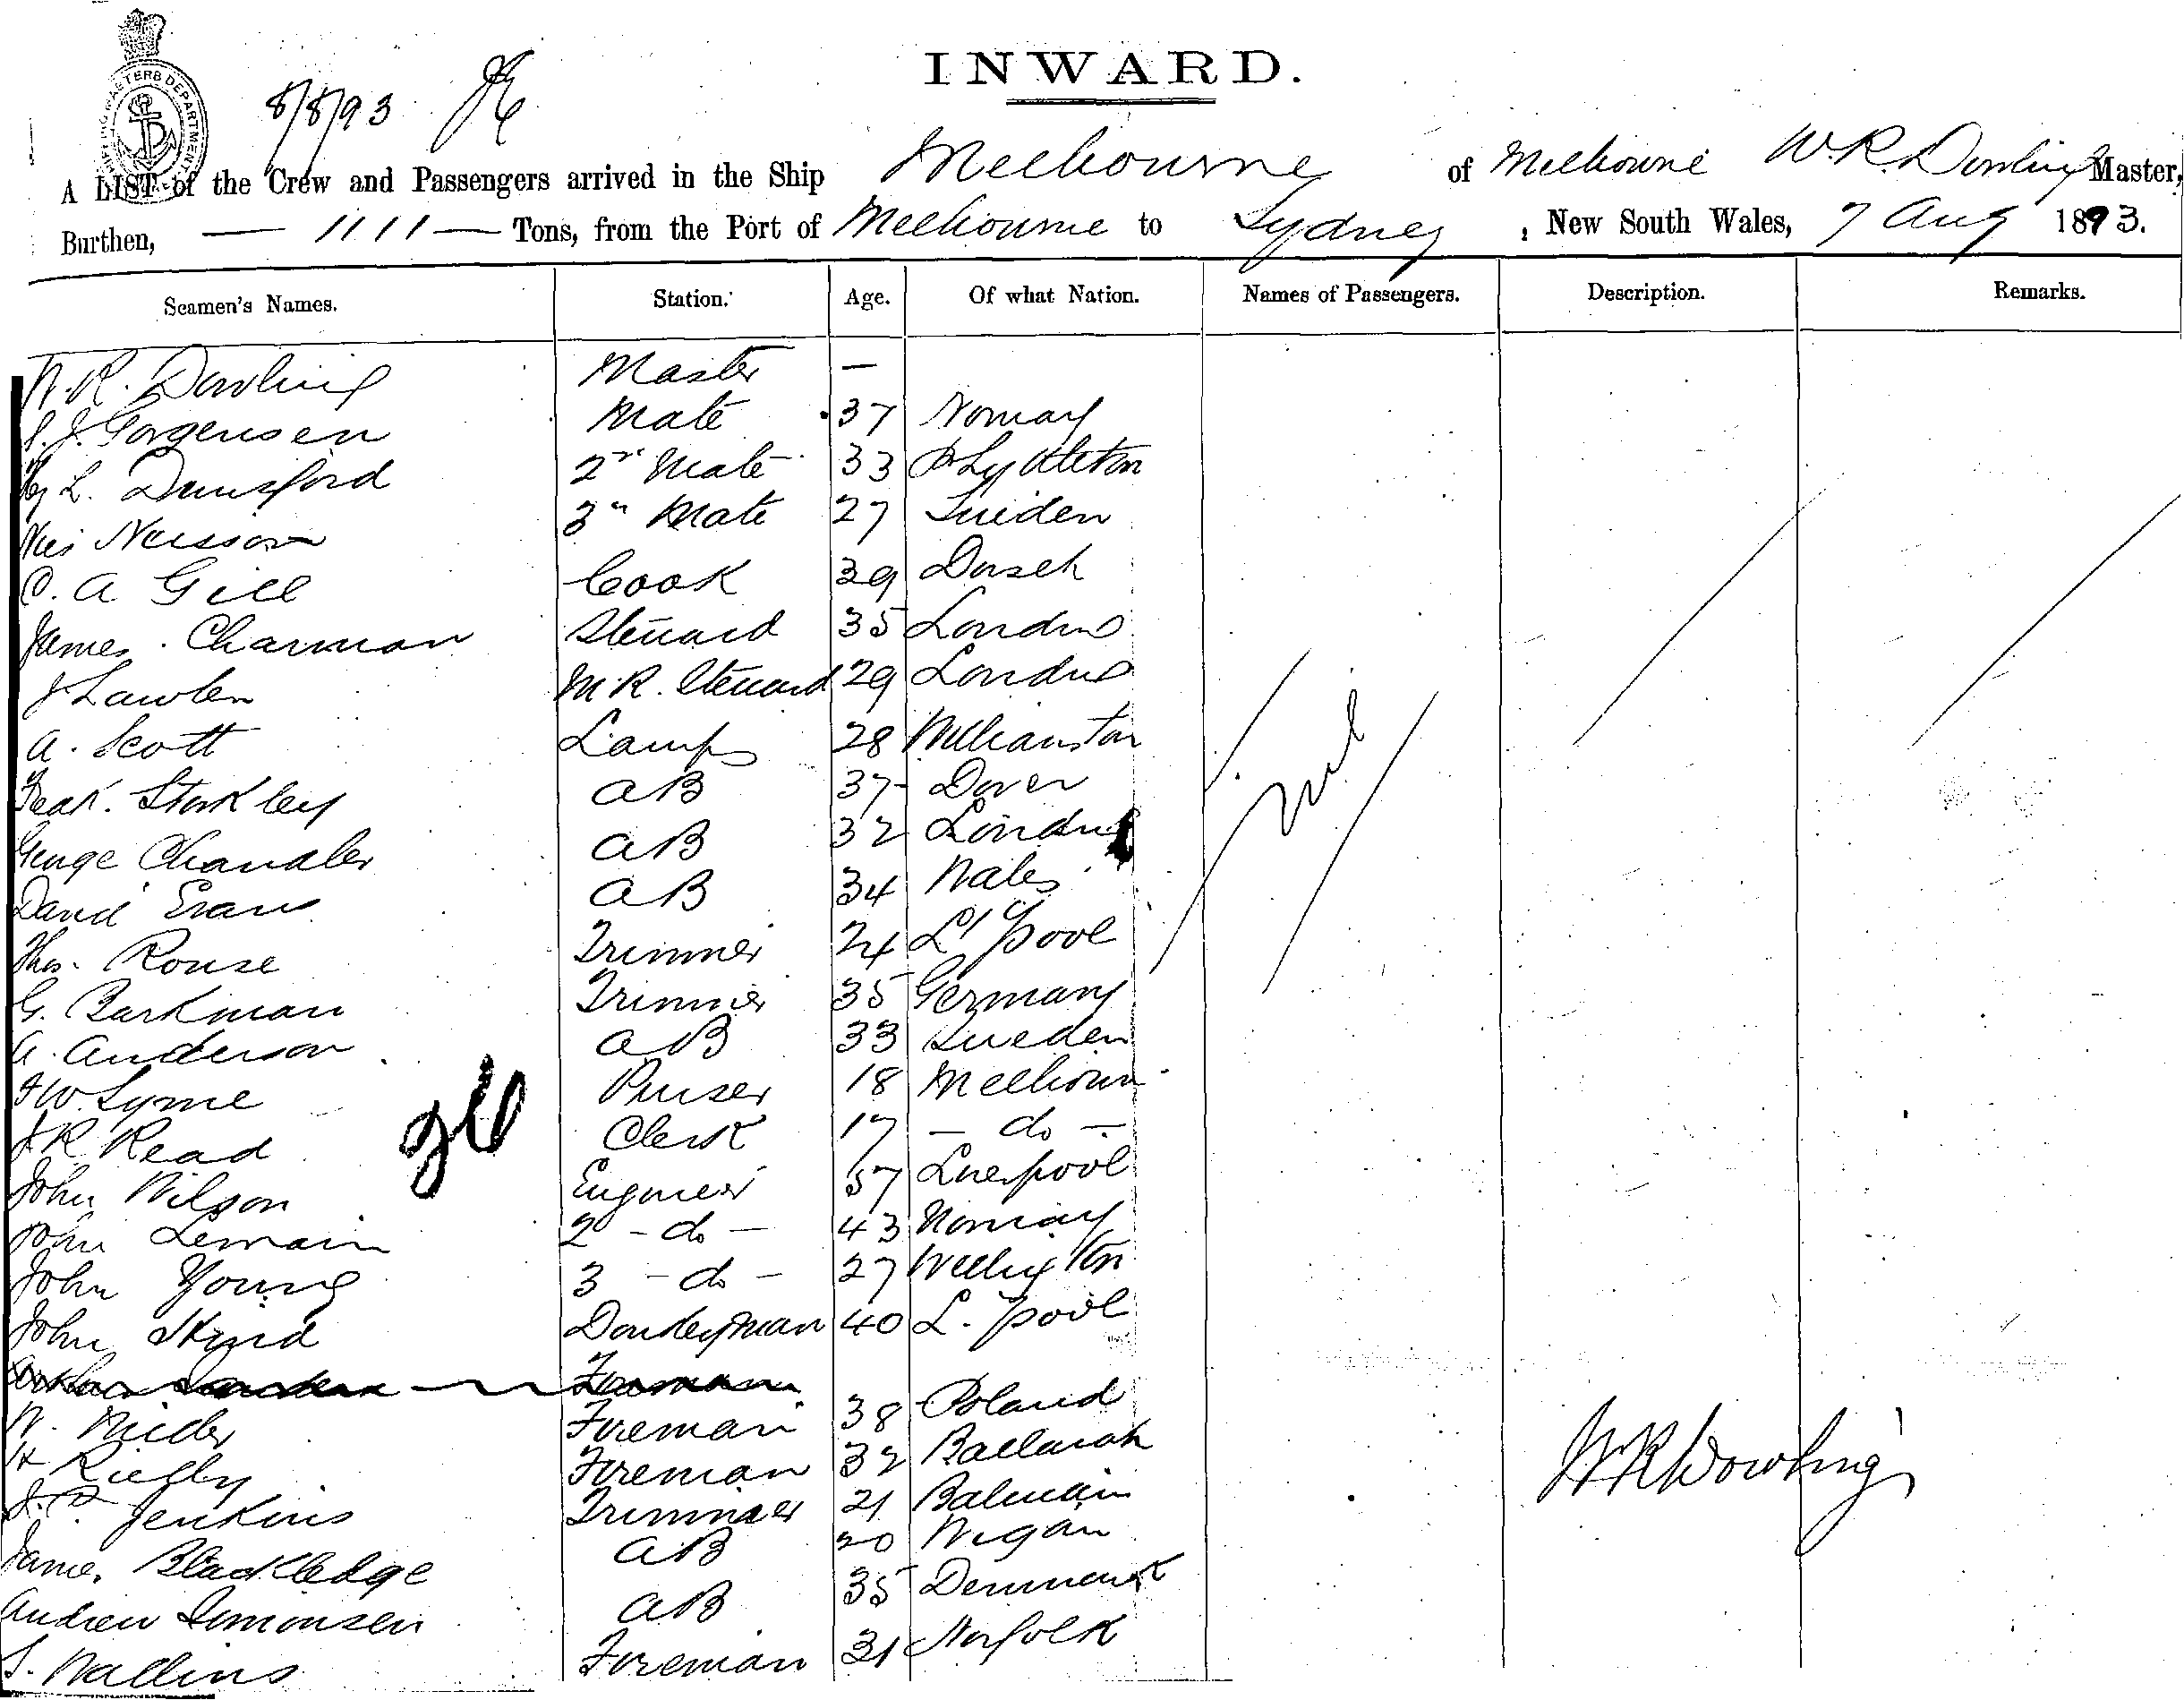 INWARD.
8/8/93
A LIST of the Crew and Passengers arrived in the Ship Melbourne of Melbourne W.R. Dowling Master,
Burthen, — 1111 — Tons, from the Port of Melbourne to Sydney, New South Wales, 7 Aug 1893.
Seamen's Names. Station. Age. Of what Nation. Names of Passengers. Description. Remarks.
W. R. Dowling Master —
J. Jorgensen Mate 37 Norway
L. Dunsford 2nd Mate 33 Lyttleton
Nils Neisson 3rd Mate 27 Sweden
C. A Gill Cook 39 Dorset
James Charman Steward 35 London
J Lawler M.R. Steward 29 London
A. Scott Lamps 28 Williamston
Fredk. Storkley AB 37 Dover
George Chandler AB 32 London
David Evans AB 34 Wales
Thos. Rouse Trimmer 24 L'pool
G. Barkman Trimmer 35 Germany
A. Anderson AB 33 Sweden
F W. Syme Purser 18 Melbourn
J R Read Clerk 17 — do —
John Wilson Engineer 57 Liverpool
John Lemain 2 - do - 43 Norway
John Young 3 - do - 27 Wellington
John Skind Donkeyman 40 L. pool
Fireman
W. Miller Fireman 38 Poland
H Rielly Fireman 32 Ballarat
J. P. Jenkins Trimmer 21 Balmain
James Blackledge AB 20 Wigan
Andrew Simonsen AB 35 Denmark
S. Wallins Fireman 31 Norfolk
Nil
WRDowling